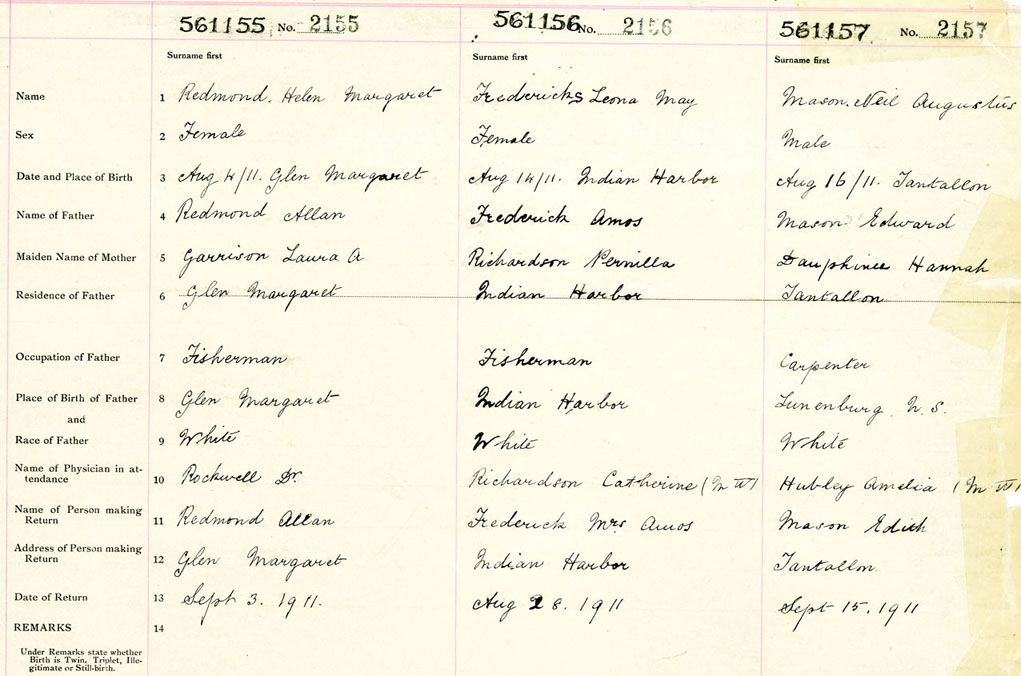 561155 No. 2155 561156 No. 2156 561157 No. 2157
Surname first Surname first Surname first
Name 1 Redmond. Helen Margaret Fredericks Leona May Mason. Neil Augustus
Sex 2 Female Female Male
Date and Place of Birth 3 Aug 4/11. Glen Margaret Aug 14/11. Indian Harbor Aug 16/11. Tantallon
Name of Father 4 Redmond Allan Frederick Amos Mason Edward
Maiden Name of Mother 5 Garrison Laura A Richardson Pernilla Dauphinee Hannah
Residence of Father 6 Glen Margaret Indian Harbor Tantallon
Occupation of Father 7 Fisherman Fisherman Carpenter
Place of Birth of Father 8 Glen Margaret Indian Harbor Lunenburg N. S.
and
Race of Father 9 White White White
Name of Physician in at-
tendance 10 Rockwell Dr. Richardson Catherine (M W) Hubley Amelia (M W)
Name of Person making
Return 11 Redmond Allan Frederick Mrs Amos Mason Edith
Address of Person making
Return 12 Glen Margaret Indian Harbor Tantallon
Date of Return 13 Sept 3. 1911. Aug 28. 1911 Sept 15. 1911
REMARKS 14
Under Remarks state whether
Birth is Twin, Triplet, Ille-
gitimate or Still-birth.